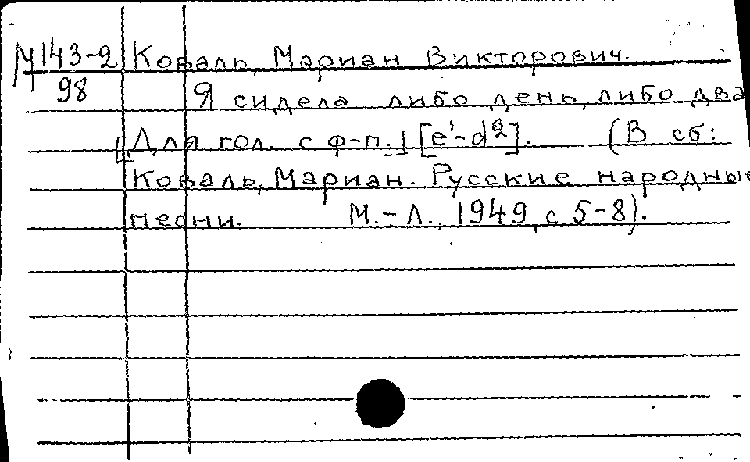 М143-2 Коваль, Мариан Викторович.
98 Я сидела либо день, либо два
[Для гол. с ф-п.] [e¹-d²]. (В сб:
Коваль, Мариан. Русские народные
песни. М.-Л., 1949, с 5-8).